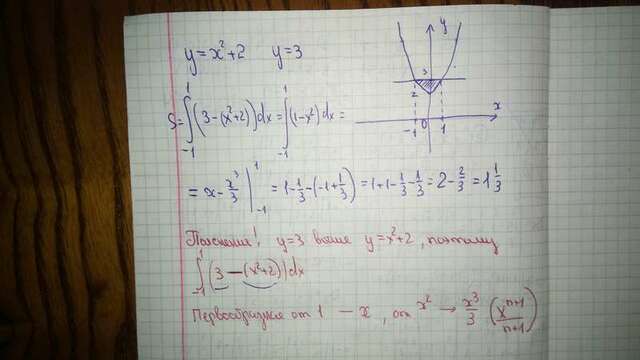 y = x² + 2   y = 3
y
3
2
-1 0 1 x
S = ∫₋₁¹ (3 - (x² + 2)) dx = ∫₋₁¹ (1 - x²) dx =
= x - x³/3 |₋₁¹ = 1 - 1/3 - (-1 + 1/3) = 1 + 1 - 1/3 - 1/3 = 2 - 2/3 = 1 1/3
Пояснения! y = 3 выше y = x² + 2, поэтому
∫₋₁¹ (3 - (x² + 2)) dx
Первообразная от 1 — x, от x² → x³/3 (xⁿ⁺¹/n+1)